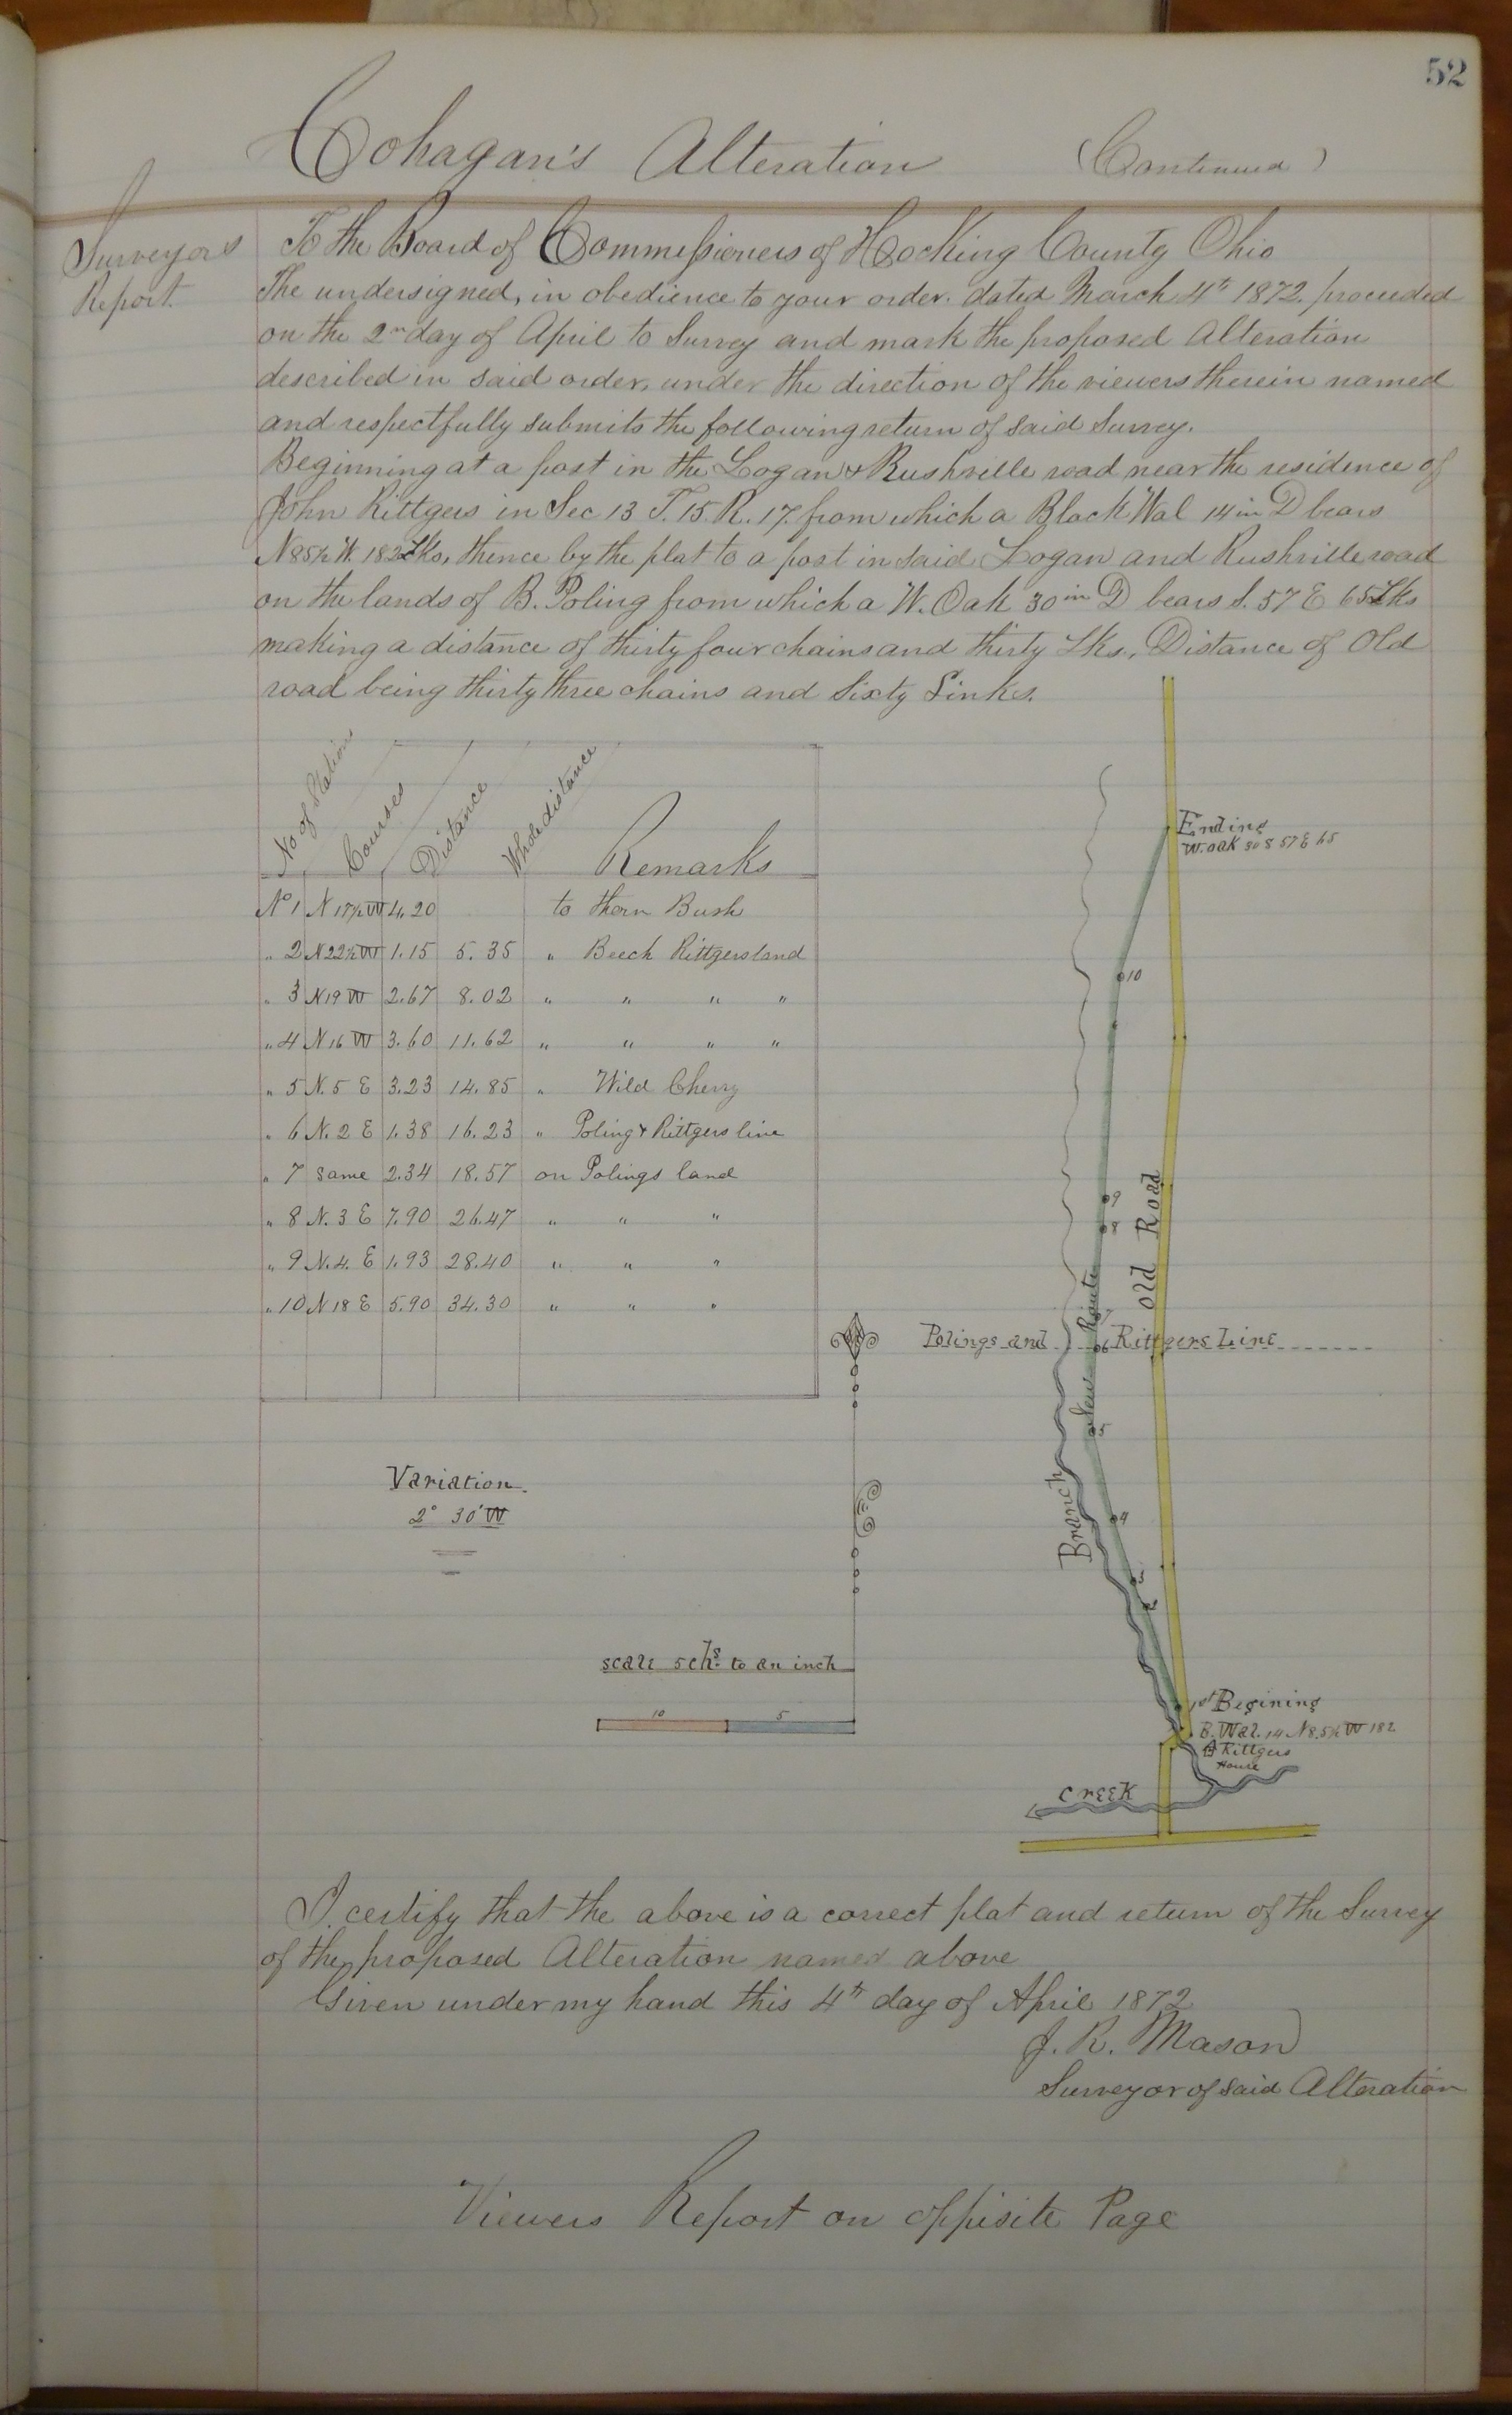 52
Cohagan's Alteration (Continued)
Surveyors
Report
To the Board of Commissioners of Hocking County Ohio
The undersigned, in obedience to your order. dated March 4th 1872. proceeded
on the 2nd day of April to Survey and mark the proposed Alteration
described in said order, under the direction of the viewers therein named
and respectfully submits the following return of said Survey.
Beginning at a post in the Logan & Rushville road near the residence of
John Rittgers in Sec 13 T. 15. R. 17. from which a Black Wal 14 in D bears
N 85½ W. 182 Lks, thence by the plat to a post in said Logan and Rushville road
on the lands of B. Poling from which a W. Oak 30 in D bears S. 57 E 65 Lks
making a distance of thirty four chains and thirty Lks, Distance of Old
road being thirty three chains and Sixty Links.
No of Station Courses Distance Whole distance Remarks
No 1 N 17½ W 4.20 to thorn Bush
" 2 N 22½ W 1.15 5.35 " Beech Rittgers land
" 3 N 19 W 2.67 8.02 " " " "
" 4 N 16 W 3.60 11.62 " " " "
" 5 N. 5 E 3.23 14.85 " Wild Cherry
" 6 N. 2 E 1.38 16.23 " Poling & Rittgers line
" 7 Same 2.34 18.57 on Polings land
" 8 N. 3 E 7.90 26.47 " " "
" 9 N. 4. E 1.93 28.40 " " "
" 10 N 18 E 5.90 34.30 " " "
Ending
W. oak 30 S 57 E 65
10
9
8
Old Road
New Route
7
Polings and 6 Rittgers Line
5
Branch
4
3
2
Variation.
2° 30' W
scale 5 chs. to an inch
10 5
1st Begining
B. Wal. 14 N 85½ W 182
Rittgers
House
Creek
I certify that the above is a correct plat and return of the Survey
of the proposed Alteration named above
Given under my hand this 4th day of April 1872
J. R. Mason
Surveyor of said Alteration
Viewers Report on oppisite Page